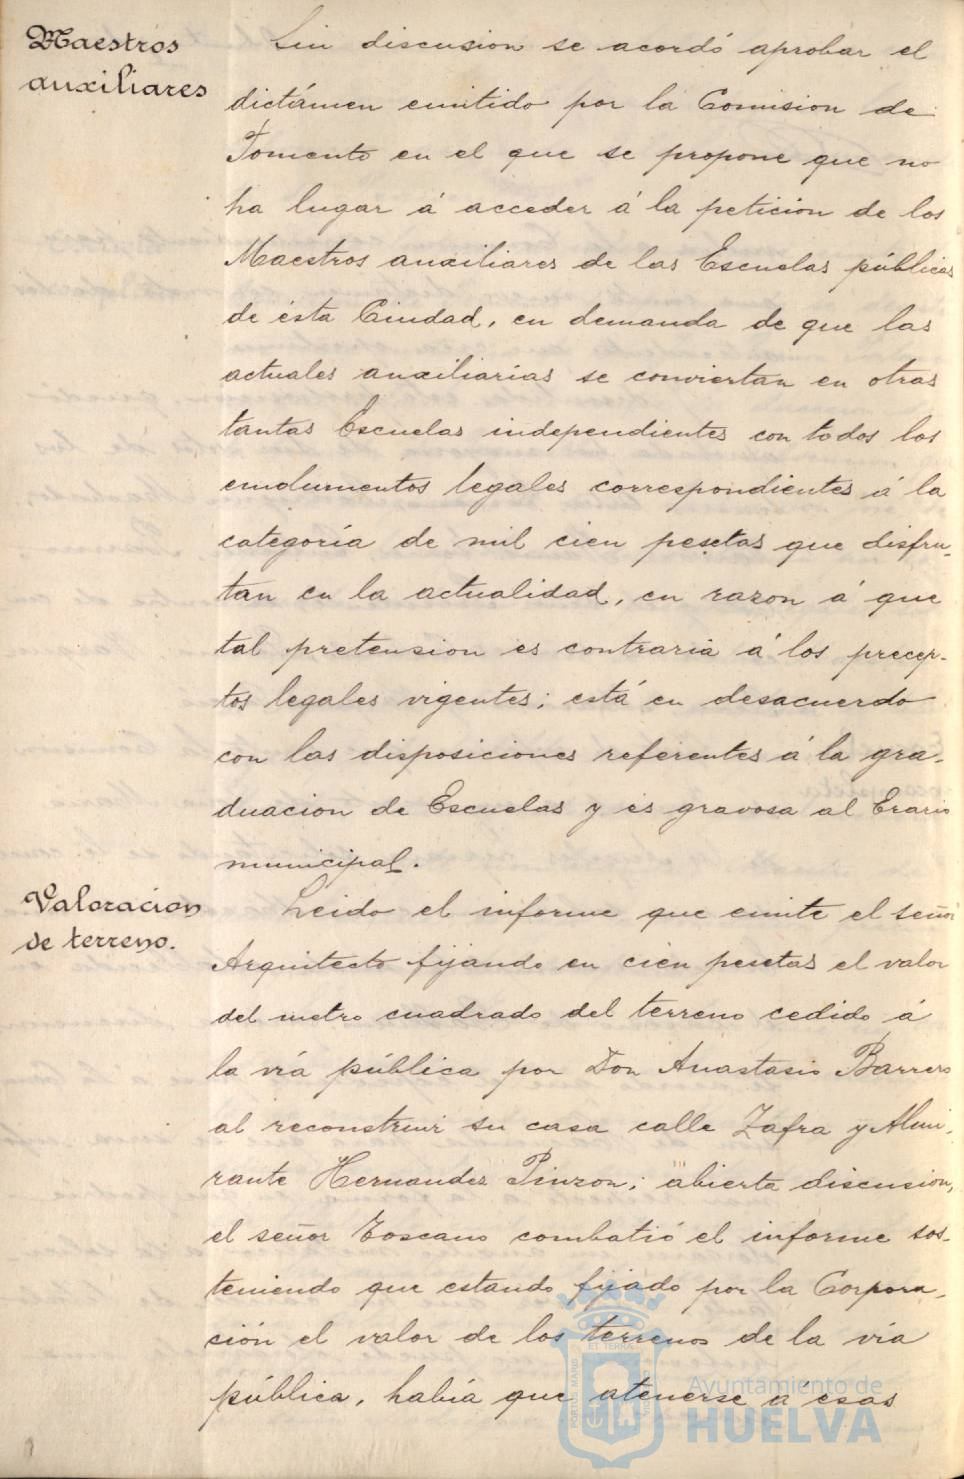 Maestros
auxiliares
Sin discusion se acordó aprobar el
dictámen emitido por la Comision de
Fomento en el que se propone que no
ha lugar á acceder á la peticion de los
Maestros auxiliares de las Escuelas públicas
de ésta Ciudad, en demanda de que las
actuales auxiliarias se conviertan en otras
tantas Escuelas independientes con todos los
emolumentos legales correspondientes á la
categoría de mil cien pesetas que disfru-
tan en la actualidad, en razon á que
tal pretension es contraria á los precep-
tos legales vigentes; está en desacuerdo
con las disposiciones referentes á la gra-
duacion de Escuelas y es gravosa al Erario
municipal.
Valoracion
de terreno.
Leido el informe que emite el señor
Arquitecto fijando en cien pesetas el valor
del metro cuadrado del terreno cedido á
la vía pública por Don Anastasio Barrero
al reconstruir su casa calle Zafra y Almi-
rante Hernandez Pinzon; abierta discusion,
el señor Toscano combatió el informe sos-
teniendo que estando fijado por la Corpora-
ción el valor de los terrenos de la vía
pública, había que atenerse á esas
PORTUS MARIS
ET TERRÆ
CUSTODIA
Ayuntamiento de
HUELVA